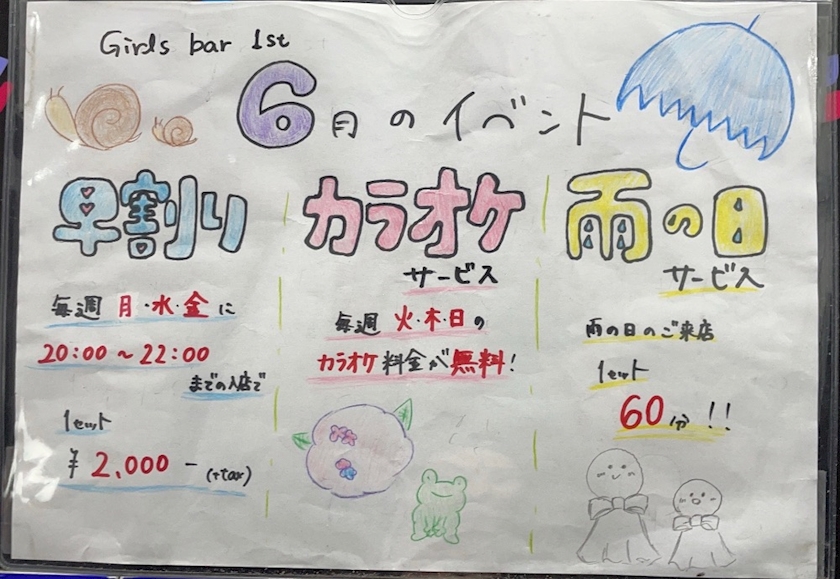 Girls bar 1st
6月のイベント
早割り
毎週 月・水・金に
20:00～22:00
までの入店で
1セット
¥2,000－(+tax)
カラオケ
サービス
毎週 火・木・日の
カラオケ料金が無料!
雨の日
サービス
雨の日のご来店
1セット
60分!!